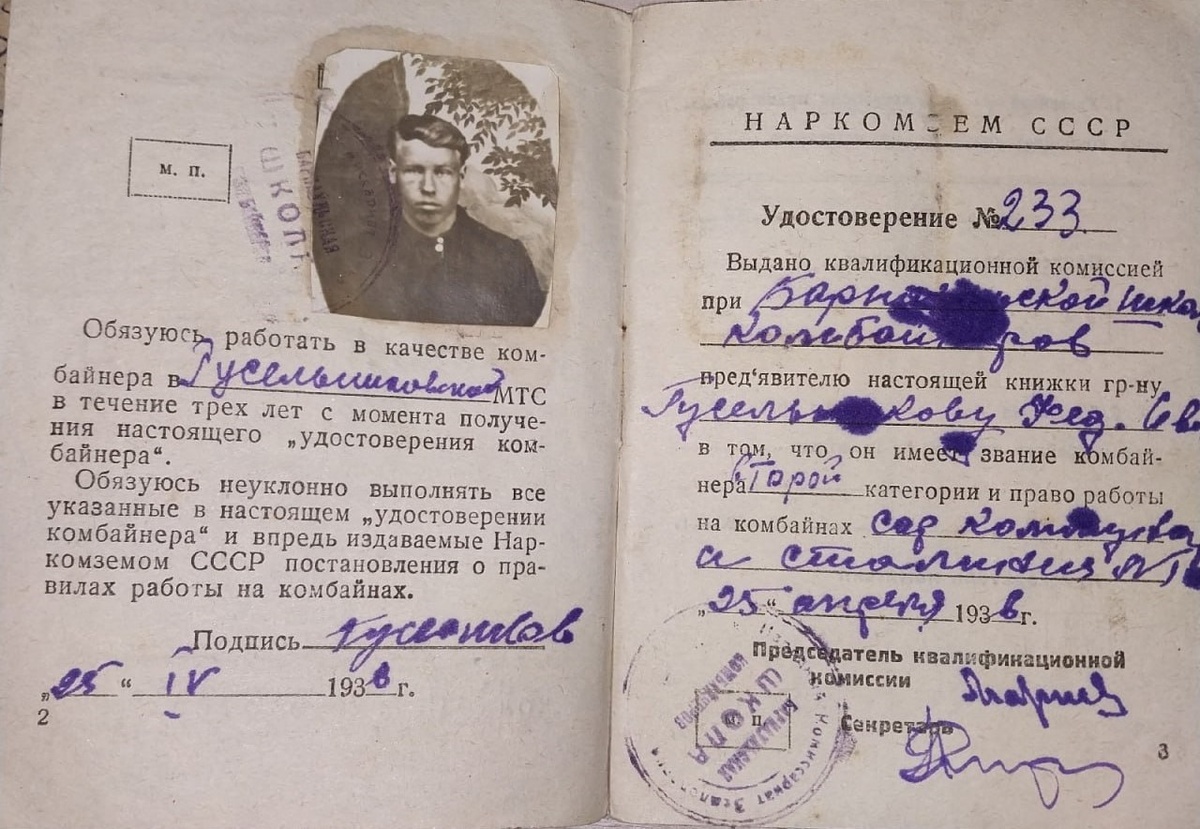 М. П.
ШКОЛА
БАРНАУЛЬСКАЯ
Обязуюсь работать в качестве ком-
байнера в Гусельниковской МТС
в течение трех лет с момента получе-
ния настоящего „удостоверения ком-
байнера“.
Обязуюсь неуклонно выполнять все
указанные в настоящем „удостоверении
комбайнера“ и впредь издаваемые Нар-
комземом СССР постановления о пра-
вилах работы на комбайнах.
Подпись
„25“ IV 1936 г.
2
НАРКОМЗЕМ СССР
Удостоверение № 233
Выдано квалификационной комиссией
при Барнаульской шко
комбайнеров
пред‘явителю настоящей книжки гр-ну
Гусельникову Фед. Ив
в том, что он имеет звание комбай-
нера второй категории и право работы
на комбайнах
и сталинец №1
„25“ апреля 1936 г.
Председатель квалификационной
комиссии
Секретарь
М. П.
БАРНАУЛЬСКАЯ
ШКОЛА
КОМБАЙНЕРОВ
3